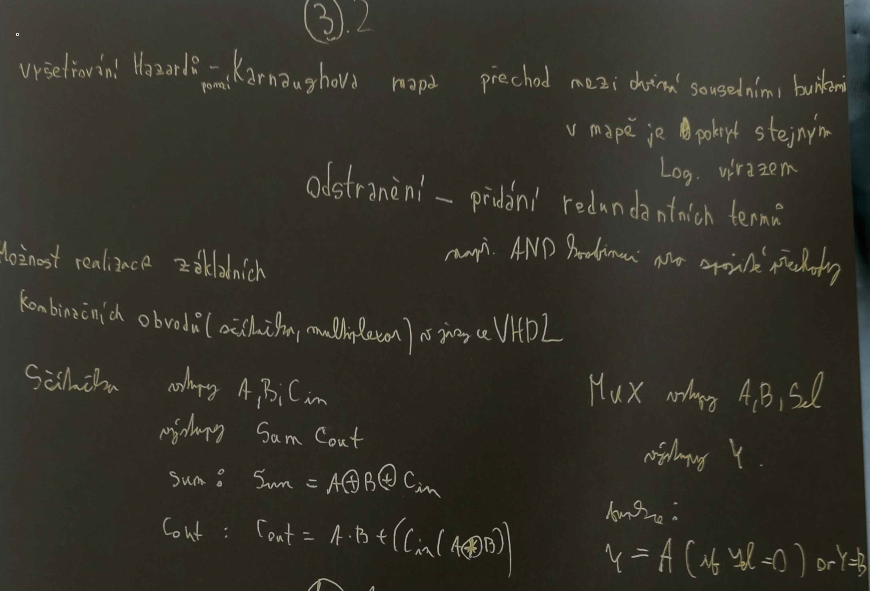 ③.2
vyšetřování Hazardů - pomí Karnaughova mapa přechod mezi dvěmi sousedními buňkami
v mapě je pokryt stejným
Log. výrazem
Odstranění - přidání redundantních termů
např. AND hodinami pro spojité přechody
Možnost realizace základních
kombinačních obvodů (sčítačka, multiplexor) v jazyce VHDL
Sčítačka vstupy A, B, Cin
výstupy Sum Cout
Sum : Sum = A⊕B⊕Cin
Cout : Cout = A·B + (Cin(A⊕B))
MUX vstupy A, B, Sel
výstupy Y.
funkce:
Y = A (if Sel = 0) or Y=B